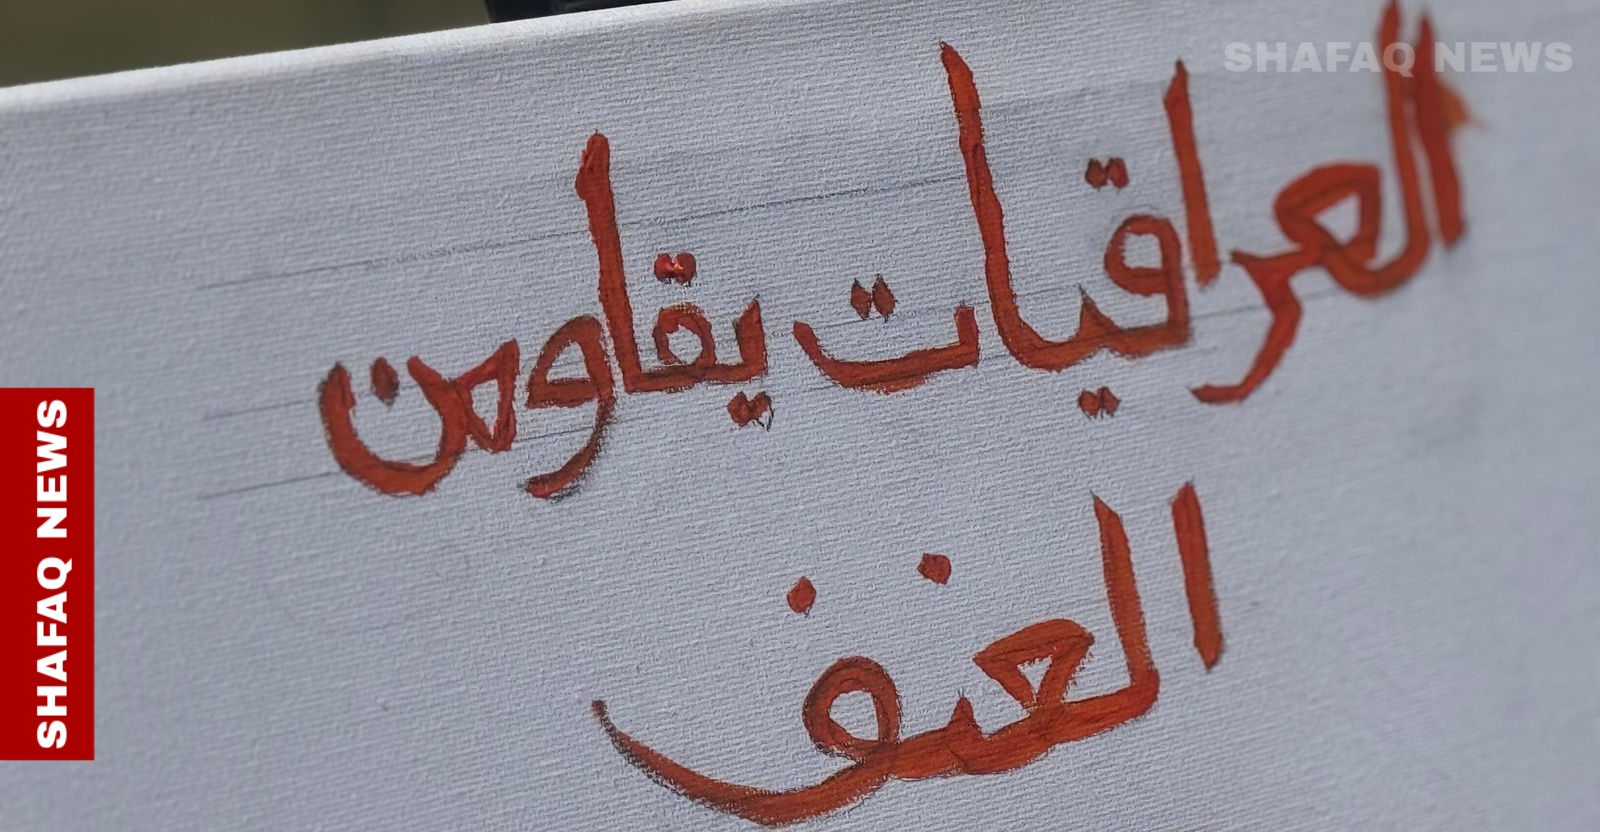 SHAFAQ NEWS
العراقيات يقاومن
العنف
SHAFAQ NEWS